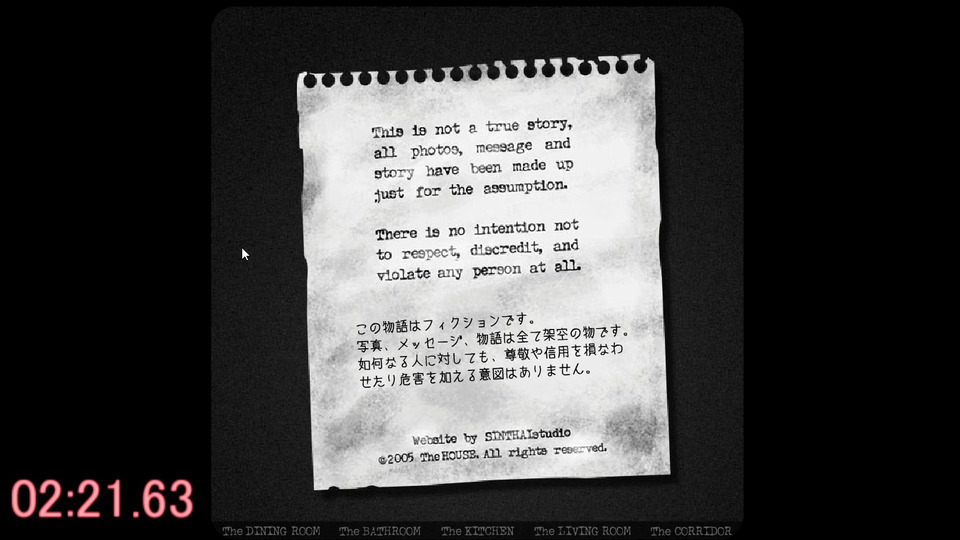 This is not a true story,
all photos, message and
story have been made up
just for the assumption.
There is no intention not
to respect, discredit, and
violate any person at all.
この物語はフィクションです。
写真、メッセージ、物語は全て架空の物です。
如何なる人に対しても、尊敬や信用を損なわ
せたり危害を加える意図はありません。
Website by SINTHAIstudio
©2005 TheHOUSE. All rights reserved.
02:21.63
The DINING ROOM The BATHROOM The KITCHEN The LIVING ROOM The CORRIDOR